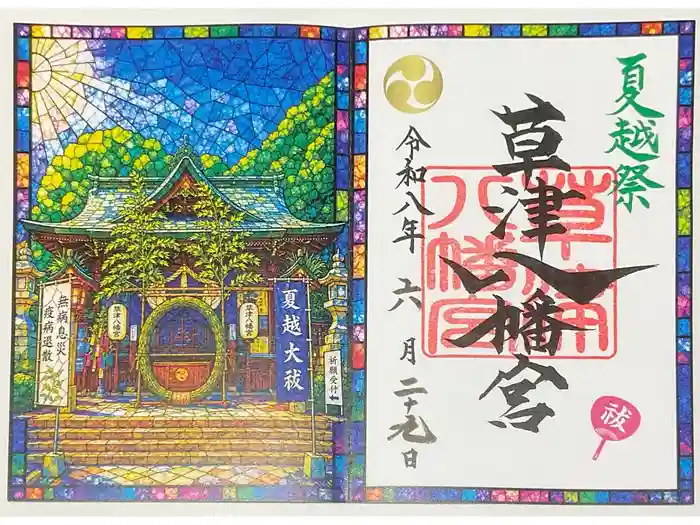 夏越祭
草津八幡宮
草津八幡宮
令和八年 六月 二十九日
祓
無病息災
疫病退散
草津八幡宮
草津八幡宮
夏越大祓
祈願受付